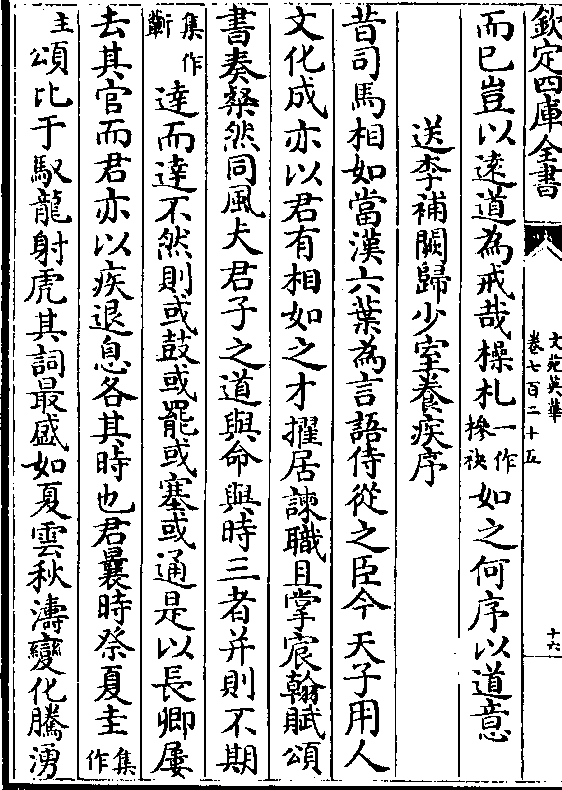 欽定四庫全書
文苑英華
卷七百二十五
十六
而已豈以逺道為戒哉操札一作摻袂如之何序以道意
送李補闕歸少室養疾序
昔司馬相如當漢六葉為言語侍從之臣今天子用人
文化成亦以君有相如之才擢居諫職且掌宸翰賦頌
書奏粲然同風夫君子之道與命與時三者并則不期
集作蘄達而達不然則或鼓或罷或塞或通是以長卿屢
去其官而君亦以疾退息各其時也君曩時祭夏圭集作
主頌比于馭龍射虎其詞最盛如夏雲秋濤變化騰湧